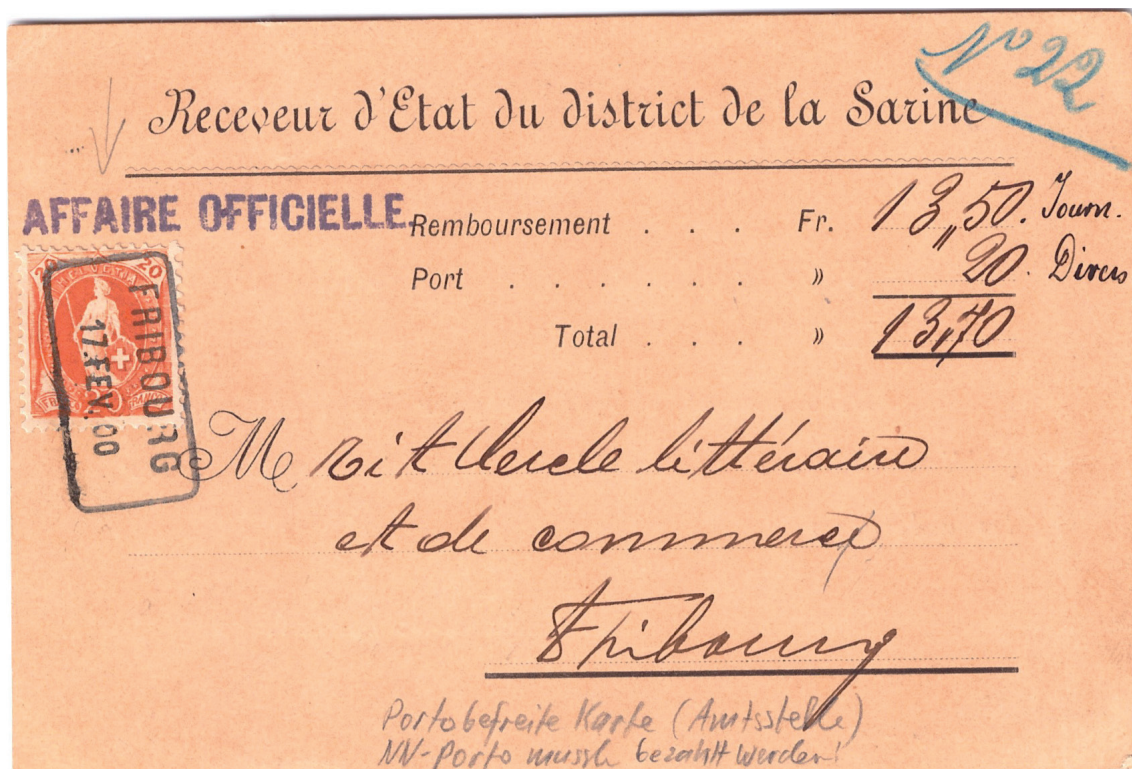 No 22
Receveur d'Etat du district de la Sarine
AFFAIRE OFFICIELLE.
Remboursement . . . Fr. 13,,50. Journ.
Port . . . . . . . » 20. Divers
Total . . . » 13,70
20 HELVETIA 20
FRANCO 20 FRANCO
FRIBOURG
17.FEV.00
M Cercle littéraire
et de commerce
Fribourg
Portobefreite Karte (Amtsstelle)
NN-Porto musste bezahlt werden!